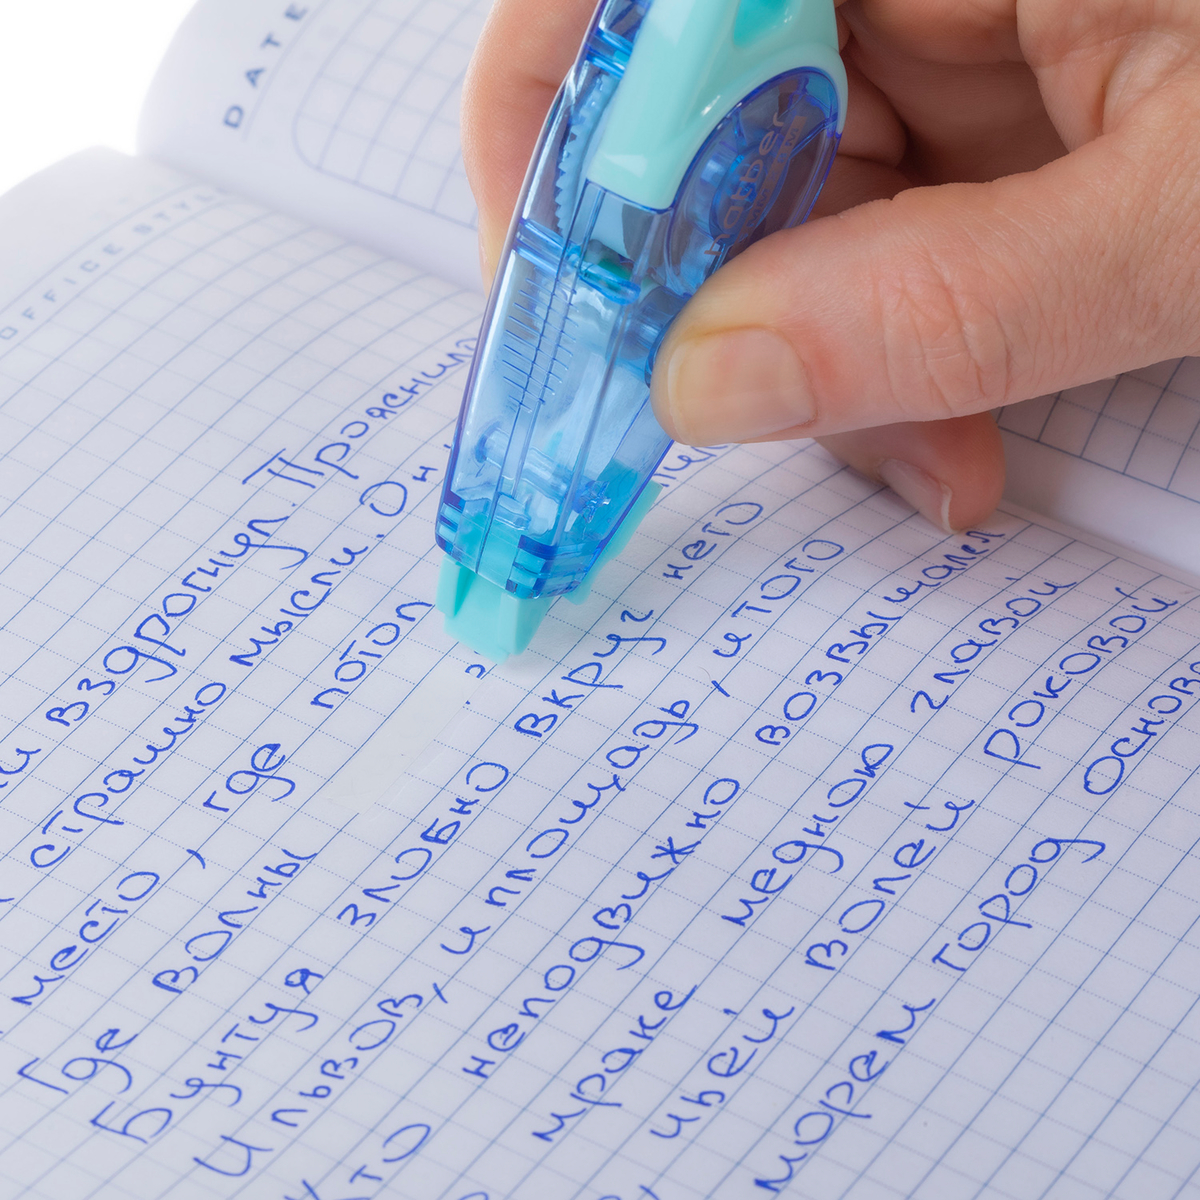 DATE
OFFICE STYL
вздрогнул. Прояснило
страшно мысли. Он
место, где потоп
Где волны
Бунтуя злобно вкруг него
И львов, и площадь, и того
Кто неподвижно возвышался
мраке медною главой
, чьей волей роковой
морем город основа
hatber